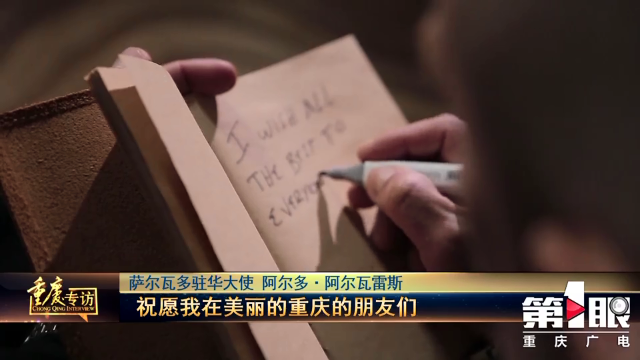 I WISH ALL
THE BEST TO
EVERYO
萨尔瓦多驻华大使 阿尔多·阿尔瓦雷斯
祝愿我在美丽的重庆的朋友们
重庆专访
CHONG QING INTERVIEW
第1眼
重庆广电